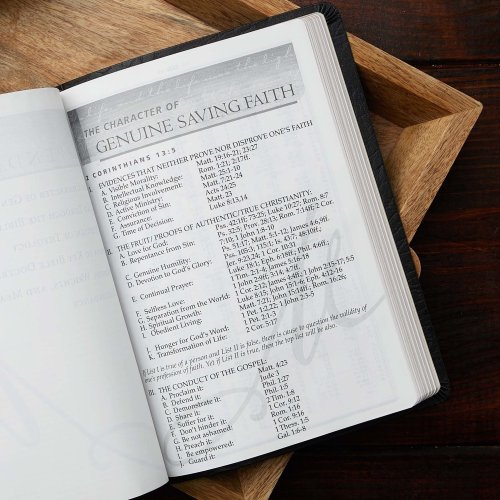 THE CHARACTER OF
GENUINE SAVING FAITH
2 CORINTHIANS 13:5
I. EVIDENCES THAT NEITHER PROVE NOR DISPROVE ONE'S FAITH
A. Visible Morality: Matt. 19:16-21; 23:27
B. Intellectual Knowledge: Rom. 1:21; 2:17ff.
C. Religious Involvement: Matt. 25:1-10
D. Active Ministry: Matt. 7:21-24
E. Conviction of Sin: Acts 24:25
F. Assurance: Matt. 23
G. Time of Decision: Luke 8:13,14
II. THE FRUIT/PROOFS OF AUTHENTIC/TRUE CHRISTIANITY:
A. Love for God: Pss. 42:1ff; 73:25; Luke 10:27; Rom. 8:7
B. Repentance from Sin: Ps. 32:5; Prov. 28:13; Rom. 7:14ff; 2 Cor.
7:10; 1 John 1:8-10
C. Genuine Humility: Ps. 51:17; Matt. 5:1-12; James 4:6,9ff.
D. Devotion to God's Glory: Pss. 105:3; 115:1; Is. 43:7, 48:10ff.;
Jer. 9:23,24; 1 Cor. 10:31
E. Continual Prayer: Luke 18:1; Eph. 6:18ff.; Phil. 4:6ff.;
1 Tim. 2:1-4; James 5:16-18
F. Selfless Love: 1 John 2:9ff, 3:14, 4:7ff.
G. Separation from the World: 1 Cor. 2:12; James 4:4ff.; 1 John 2:15-17, 5:5
H. Spiritual Growth: Luke 8:15; John 15:1-6; Eph. 4:12-16
I. Obedient Living: Matt. 7:21; John 15:14ff.; Rom. 16:26;
1 Pet. 1:2,22; 1 John 2:3-5
J. Hunger for God's Word: 1 Pet. 2:1-3
K. Transformation of Life: 2 Cor. 5:17
If List I is true of a person and List II is false, there is cause to question the validity of
one's profession of faith. Yet if List II is true, then the top list will be also.
III. THE CONDUCT OF THE GOSPEL:
A. Proclaim it: Matt. 4:23
B. Defend it: Jude 3
C. Demonstrate it: Phil. 1:27
D. Share it: Phil. 1:5
E. Suffer for it: 2 Tim. 1:8
F. Don't hinder it: 1 Cor. 9:12
G. Be not ashamed: Rom. 1:16
H. Preach it: 1 Cor. 9:16
I. Be empowered: 1 Thess. 1:5
J. Guard it: Gal. 1:6-8